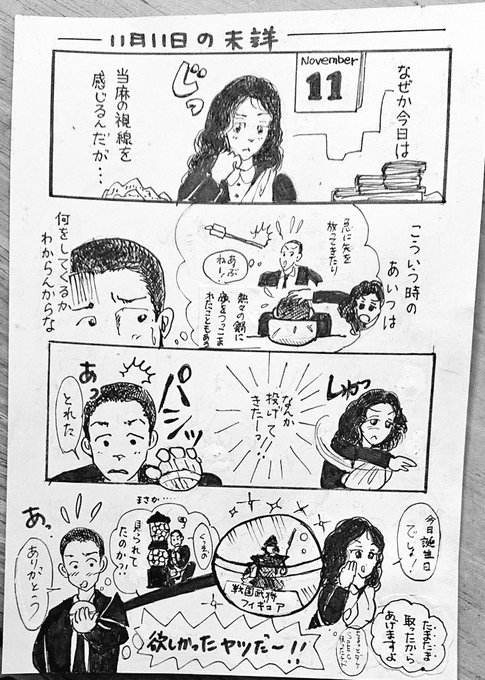 11月11日の未詳
November
11
なぜか今日は
当麻の視線を
感じるんだが…
じっ
こういう時の
あいつは
急に矢を
放ってきたり
あぶ
ねー!
熱々の鍋に
顔をつっこま
れたこともある
何をしてくるか
わからんからな
しゅっ
なんか
投げて
きたーっ!
パシッ
あっ
とれた
今日誕生日
でしょ!
たまたま
取ったから
あげますよ
戦国武将
フィギュア
まさか……
見られて
たのか?!
くっ…
欲しかったヤツだ〜!!
あっ
ありがとう